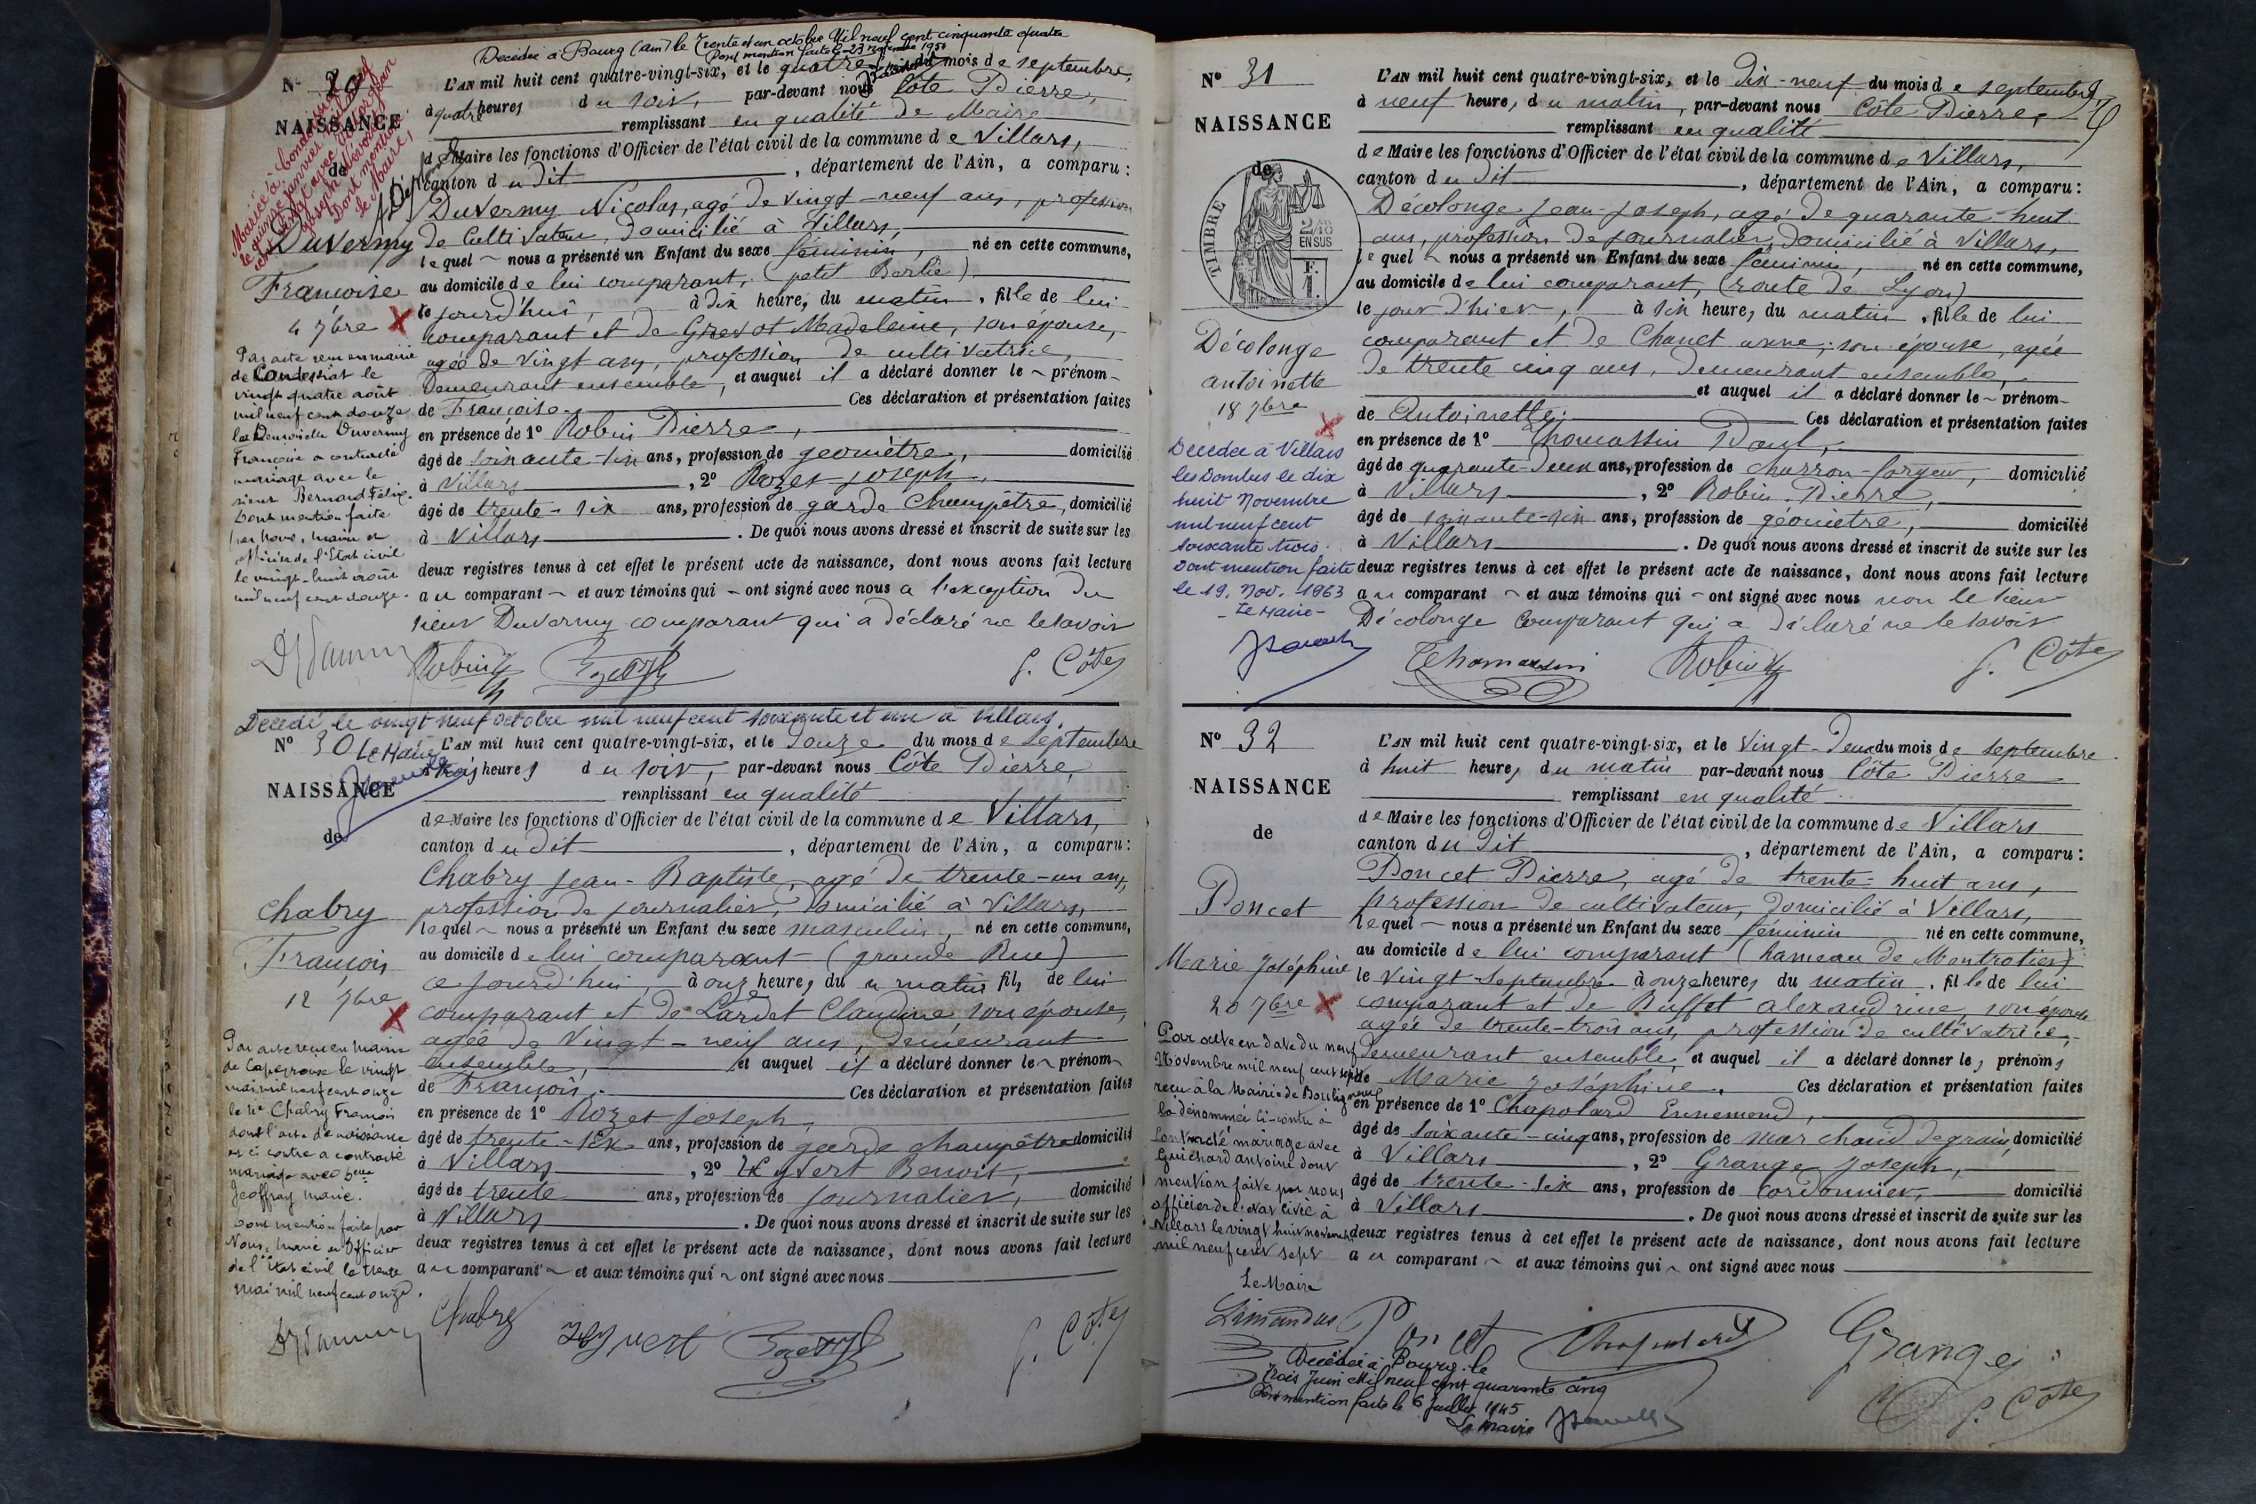 Decedée à Bourg (Ain) le Trente et un octobre Mil neuf cent cinquante quatre
Dont mention faite le 23 novembre 1954
N° 29
NAISSANCE
de
Duvermy
Françoise
4 7bre X
Mariée à Condeissiat
le quinze janvier
avec
Joseph
Dont mention
le Maire,
L'AN mil huit cent quatre-vingt-six, et le quatre du mois de septembre,
à quatre heures du soir, par-devant nous Côte Pierre,
remplissant en qualité de Maire
de Maire les fonctions d'Officier de l'état civil de la commune de Villars,
canton dudit, département de l'Ain, a comparu:
Duvermy Nicolas, agé de vingt-neuf ans, profession
de Cultivateur, domicilié à Villars,
lequel nous a présenté un Enfant du sexe féminin, né en cette commune,
au domicile de lui comparant, (petit Berlie)
le jourd'hui, à dix heures, du matin, fille de lui
comparant et de Greset Madeleine, son épouse,
agée de vingt ans, profession de cultivatrice,
demeurant ensemble, et auquel il a déclaré donner le prénom
de Françoise. Ces déclaration et présentation faites
en présence de 1° Robin Pierre,
âgé de soixante-six ans, profession de géomètre, domicilié
à Villars, 2° Rozet Joseph,
âgé de trente-six ans, profession de garde Champêtre, domicilié
à Villars. De quoi nous avons dressé et inscrit de suite sur les
deux registres tenus à cet effet le présent acte de naissance, dont nous avons fait lecture
au comparant et aux témoins qui ont signé avec nous a l'exception du
sieur Duvermy comparant qui a déclaré ne le savoir
Par acte reçu en mairie
de Condeissiat le
vingt quatre août
mil neuf cent douze
la Demoiselle Duvermy
Françoise a contracté
mariage avec le
sieur Bernard Félix.
Dont mention faite
par Nous, maire et
officier de l'Etat civil
le vingt-huit août
mil neuf cent douze.
Robin Rozet J. Côte
Decedé le vingt neuf octobre mil neuf cent soixante et un à Villars.
Le Maire
N° 30
NAISSANCE
de
Chabry
François
12 7bre X
L'AN mil huit cent quatre-vingt-six, et le douze du mois de Septembre
à trois heures du soir, par-devant nous Côte Pierre,
remplissant en qualité
de Maire les fonctions d'Officier de l'état civil de la commune de Villars,
canton dudit, département de l'Ain, a comparu:
Chabry Jean-Baptiste, agé de trente-un ans,
profession de journalier, domicilié à Villars,
lequel nous a présenté un Enfant du sexe masculin, né en cette commune,
au domicile de lui comparant (grande Rue)
ce jourd'hui, à onze heures, du matin fils de lui
comparant et de Lardet Claudine, son épouse,
agée de Vingt-neuf ans, demeurant
ensemble, et auquel il a déclaré donner le prénom
de François. Ces déclaration et présentation faites
en présence de 1° Rozet Joseph,
âgé de trente-six ans, profession de garde champêtre domicilié
à Villars, 2° Benoit,
âgé de trente ans, profession de journalier, domicilié
à Villars. De quoi nous avons dressé et inscrit de suite sur les
deux registres tenus à cet effet le présent acte de naissance, dont nous avons fait lecture
au comparant et aux témoins qui ont signé avec nous
Par acte reçu en Mairie
de Lapeyrouse le vingt
mai mil neuf cent onze
le Mr Chabry François
dont l'acte de naissance
est ci contre a contracté
mariage avec Delle
Geoffray Marie.
Dont mention faite par
Nous, maire et Officier
de l'état civil le trente
mai mil neuf cent onze.
Chabry Rozet J. Côte
N° 31
NAISSANCE
de
TIMBRE
2/10 EN SUS
F. 1.
Décolonge
antoinette
18 7bre X
L'AN mil huit cent quatre-vingt-six, et le dix-neuf du mois de septembre,
à neuf heures, du matin, par-devant nous Côte Pierre,
remplissant en qualité
de Maire les fonctions d'Officier de l'état civil de la commune de Villars,
canton dudit, département de l'Ain, a comparu:
Décolonge Jean-Joseph, agé de quarante-huit
ans, profession de journalier, domicilié à Villars,
lequel nous a présenté un Enfant du sexe féminin, né en cette commune,
au domicile de lui comparant, (route de Lyon)
le jour d'hier, à six heures, du matin, fille de lui
comparant et de Chanet anne, son épouse, agée
de trente cinq ans, demeurant ensemble,
et auquel il a déclaré donner le prénom
de Antoinette. Ces déclaration et présentation faites
en présence de 1° Thomassin Paul,
âgé de quarante-deux ans, profession de charron-forgeur, domicilié
à Villars, 2° Robin Pierre,
âgé de soixante-six ans, profession de géomètre, domicilié
à Villars. De quoi nous avons dressé et inscrit de suite sur les
deux registres tenus à cet effet le présent acte de naissance, dont nous avons fait lecture
au comparant et aux témoins qui ont signé avec nous non le sieur
Décolonge comparant qui a déclaré ne le savoir
Decedée à Villars
les Dombes le dix
huit Novembre
mil neuf cent
soixante trois.
Dont mention faite
le 19. Nov. 1963
Le Maire
Thomassin Robin J. Côte
N° 32
NAISSANCE
de
Poncet
Marie Joséphine
20 7bre X
L'AN mil huit cent quatre-vingt-six, et le Vingt-deux du mois de septembre
à huit heures, du matin par-devant nous Côte Pierre
remplissant en qualité
de Maire les fonctions d'Officier de l'état civil de la commune de Villars
canton dudit, département de l'Ain, a comparu:
Poncet Pierre, agé de trente-huit ans,
profession de cultivateur, domicilié à Villars,
lequel nous a présenté un Enfant du sexe féminin né en cette commune,
au domicile de lui comparant (hameau de Montrotier)
le vingt Septembre à onze heures du matin, fille de lui
comparant et de Buffet alexandrine, son épouse
agée de trente-trois ans, profession de cultivatrice,
demeurant ensemble, et auquel il a déclaré donner les prénoms
de Marie Joséphine. Ces déclaration et présentation faites
en présence de 1° Chapolard Ennemond,
âgé de soixante-cinq ans, profession de marchand de grains, domicilié
à Villars, 2° Grange Joseph,
âgé de trente-six ans, profession de cordonnier, domicilié
à Villars. De quoi nous avons dressé et inscrit de suite sur les
deux registres tenus à cet effet le présent acte de naissance, dont nous avons fait lecture
au comparant et aux témoins qui ont signé avec nous
Par acte en date du neuf
Novembre mil neuf cent sept
reçu à la Mairie de Bouligneux
la dénommée ci-contre a
contracté mariage avec
Guichard antoine dont
mention faite par nous
officier de l'état civil à
Villars le vingt huit novembre
mil neuf cent sept
Le Maire
Limandas Poncet Chapolard Grange
J. Côte
Decédée à Bourg le
trois Juin Mil neuf cent quarante cinq
Dont mention faite le 6 Juillet 1945
Le Maire